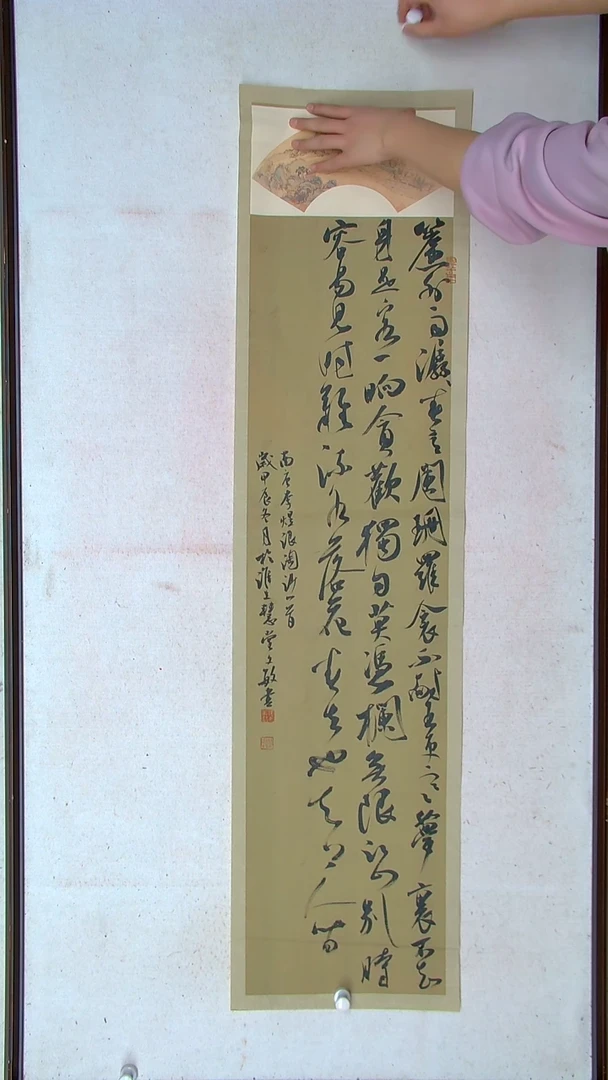 簾外雨潺潺春意闌珊羅衾不耐五更寒夢裏不知
身是客一晌貪歡獨自莫憑欄無限江山別時
容易見時難流水落花春去也天上人間
南唐李煜浪淘沙一首
歲甲辰冬月於淮上慧堂文敏書